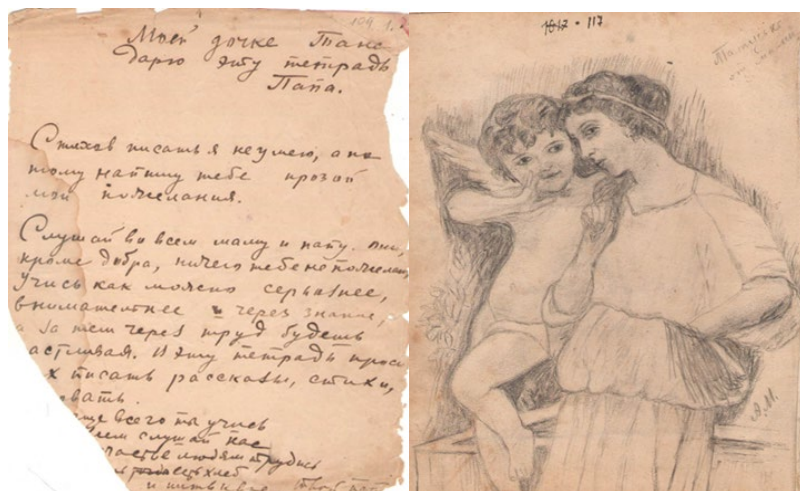 109
Моей дочке Тане
дарю эту тетрадь
Папа.
Стихов писать я не умею, а по
тому напишу тебе прозой
мои пожелания.
Слушай во всем маму и папу. Они,
кроме добра, ничего тебе не пожелают
Учись как можно серьезнее,
внимательнее и через знание,
а затем через труд будешь
астливая. В эту тетрадь проси
х писать рассказы, стихи,
овать.
ще всего ты учись
всем слушай нас
частье людям трудись
есть хлеб
и пить квас Твой пап
1017 • 117
Танусике
от мамы
В.М.